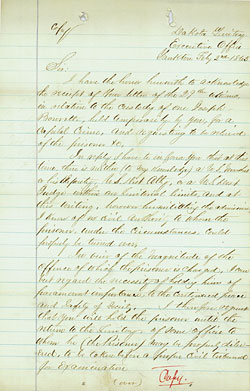 Copy
Dakota Territory
Executive Office
Yankton Feby 2nd 1865
Sir:
I have the honor herewith to acknowledge
the receipt of your letter of the 29th ultimo
in relation to the custody of one Joseph
held temporarily by you, for a
Capital Crime, and requesting to be relieved
of the prisoner &c.
In reply I have to inform you that at this
time, there is neither (to my knowledge) a U.S. Marshal
or his deputy, U.S. Dist. Atty. or a U.S. Dist.
Judge within our territorial limits, and at
this writing, however humiliating the admission
I know of no Civil Authority to whom the
prisoner, under the circumstances, could
properly be turned over.
In view of the magnitude of the
offence of which the prisoner is charged, I can
but regard the necessity of holding him of
paramount importance, to the continued peace
and safety of society. I therefore request
that you will hold the prisoner until the
return to the Territory of some officer to
whom he (the prisoner) may be properly delivered
and to be taken before a proper Civil tribunal
for examination.
(over)
Copy.